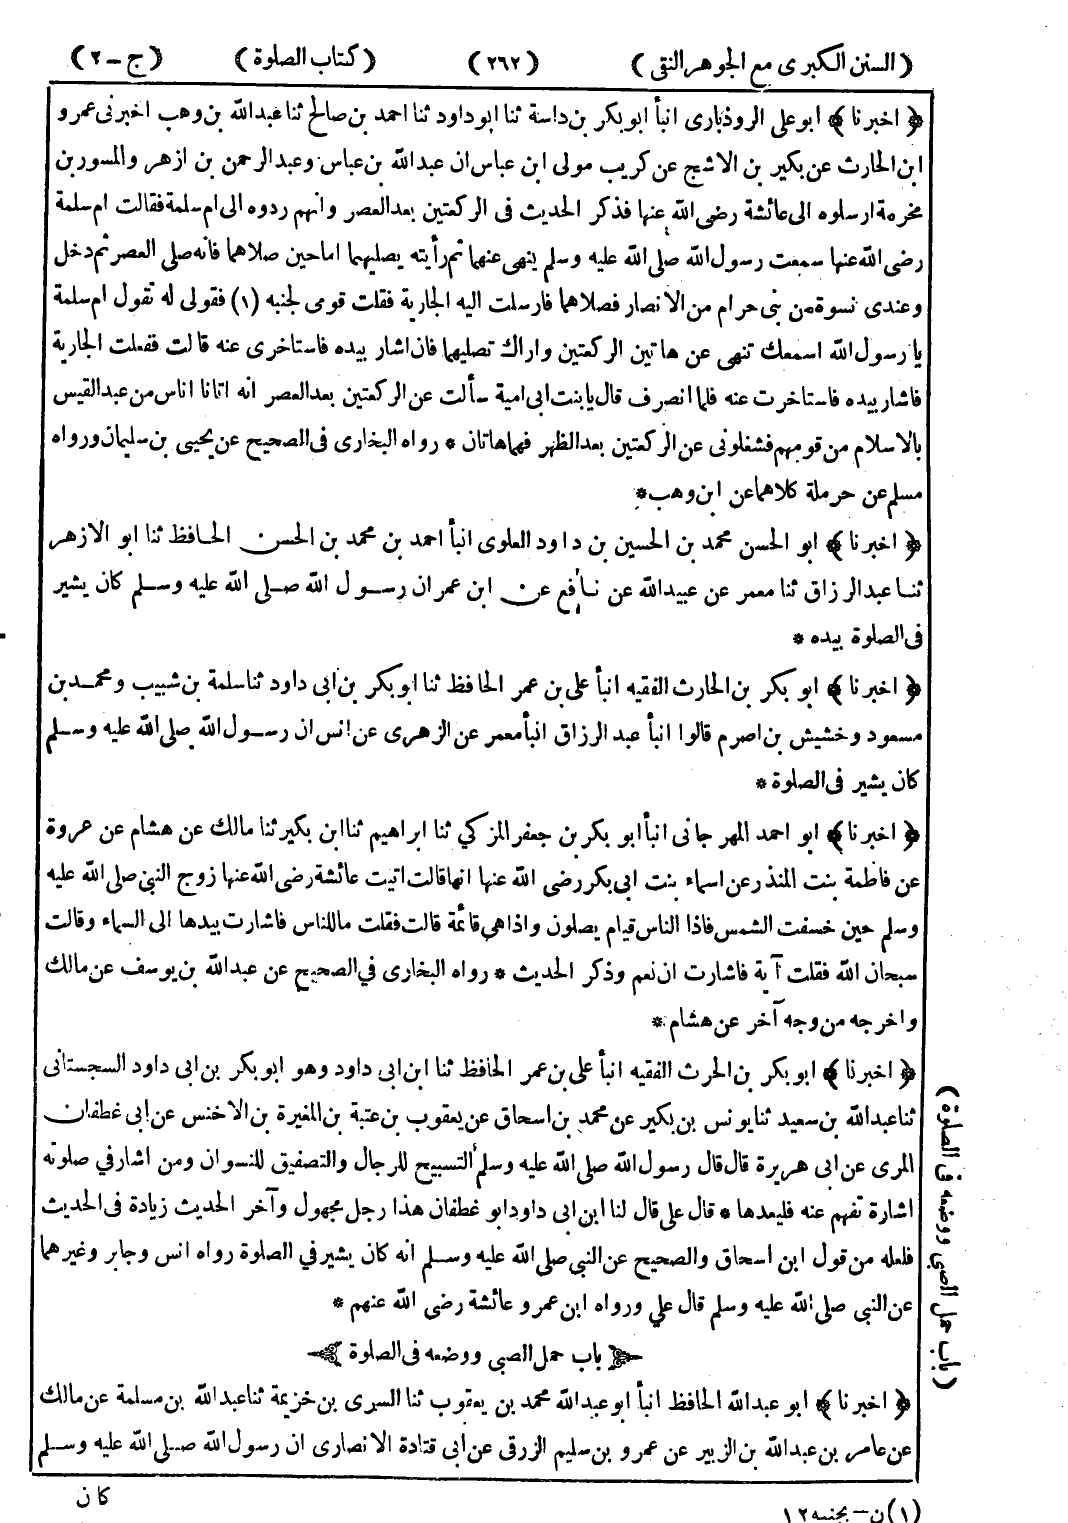 (السنن الكبرى مع الجوهر النقى) (٢٦٢) (كتاب الصلوة) (ج-٢)
﴿اخبرنا﴾ ابو على الروذبارى انبأ ابوبكر بن داسة ثنا ابوداود ثنا احمد بن صالح ثنا عبدالله بن وهب اخبرنى عمرو
ابن الحارث عن بكير بن الاشج عن كريب مولى ابن عباس ان عبدالله بن عباس وعبد الرحمن بن ازهر والمسور بن
مخرمة ارسلوه الى عائشة رضى الله عنها فذكر الحديث فى الركعتين بعد العصر وانهم ردوه الى ام سلمة فقالت ام سلمة
رضى الله عنها سمعت رسول الله صلى الله عليه وسلم ينهى عنهما ثم رأيته يصليهما اما حين صلاهما فانه صلى العصر ثم دخل
وعندى نسوة من بنى حرام من الانصار فصلاهما فارسلت اليه الجارية فقلت قومى لجنبه (١) فقولى له تقول ام سلمة
يا رسول الله اسمعك تنهى عن هاتين الركعتين واراك تصليهما فان اشار بيده فاستاخرى عنه قالت ففعلت الجارية
فاشار بيده فاستاخرت عنه فلما انصرف قال يا بنت ابى امية سألت عن الركعتين بعد العصر انه اتانا اناس من عبد القيس
بالاسلام من قومهم فشغلونى عن الركعتين بعد الظهر فهما هاتان * رواه البخارى فى الصحيح عن يحيى بن سليمان ورواه
مسلم عن حرملة كلاهما عن ابن وهب*
﴿اخبرنا﴾ ابو الحسن محمد بن الحسين بن داود العلوى انبأ احمد بن محمد بن الحسن الحافظ ثنا ابو الازهر
ثنا عبد الرزاق ثنا معمر عن عبيدالله عن نافع عن ابن عمر ان رسول الله صلى الله عليه وسلم كان يشير
فى الصلوة بيده *
﴿اخبرنا﴾ ابو بكر بن الحارث الفقيه انبأ على بن عمر الحافظ ثنا ابو بكر بن ابى داود ثنا سلمة بن شبيب ومحمد بن
مسعود وخشيش بن اصرم قالوا انبأ عبد الرزاق انبأ معمر عن الزهرى عن انس ان رسول الله صلى الله عليه وسلم
كان يشير فى الصلوة *
﴿اخبرنا﴾ ابو احمد المهرجانى انبأ ابو بكر بن جعفر المزكي ثنا ابراهيم ثنا ابن بكير ثنا مالك عن هشام عن عروة
عن فاطمة بنت المنذر عن اسماء بنت ابى بكر رضى الله عنها انها قالت اتيت عائشة رضى الله عنها زوج النبي صلى الله عليه
وسلم حين خسفت الشمس فاذا الناس قيام يصلون واذا هي قائمة قالت فقلت ما للناس فاشارت بيدها الى السماء وقالت
سبحان الله فقلت آية فاشارت ان نعم وذكر الحديث * رواه البخارى في الصحيح عن عبدالله بن يوسف عن مالك
واخرجه من وجه آخر عن هشام *
﴿اخبرنا﴾ ابو بكر بن الحرث الفقيه انبأ على بن عمر الحافظ ثنا ابن ابى داود وهو ابو بكر بن ابى داود السجستانى
ثنا عبدالله بن سعيد ثنا يونس بن بكير عن محمد بن اسحاق عن يعقوب بن عتبة بن المغيرة بن الاخنس عن ابى غطفان
المرى عن ابى هريرة قال قال رسول الله صلى الله عليه وسلم التسبيح للرجال والتصفيق للنسوان ومن اشار في صلوته
اشارة تفهم عنه فليعدها * قال على قال لنا ابن ابى داود ابو غطفان هذا رجل مجهول وآخر الحديث زيادة فى الحديث
فلعله من قول ابن اسحاق والصحيح عن النبي صلى الله عليه وسلم انه كان يشير في الصلوة رواه انس وجابر وغيرهما
عن النبى صلى الله عليه وسلم قال علي ورواه ابن عمر و عائشة رضى الله عنهم *
باب حمل الصبى ووضعه فى الصلوة
(باب حمل الصبى ووضعه فى الصلوة)
﴿اخبرنا﴾ ابو عبدالله الحافظ انبأ ابو عبدالله محمد بن يعقوب ثنا السرى بن خزيمة ثنا عبدالله بن مسلمة عن مالك
عن عامر بن عبدالله بن الزبير عن عمرو بن سليم الزرقى عن أبى قتادة الانصارى ان رسول الله صلى الله عليه وسلم
كان
(١) ن - بجنبه ١٢